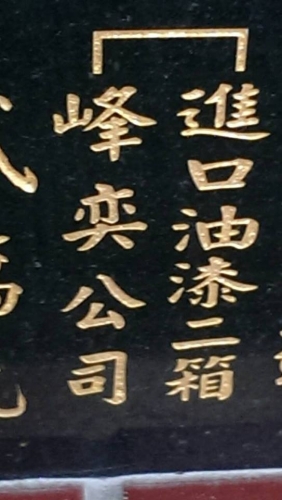 進口油漆二箱
峰奕公司